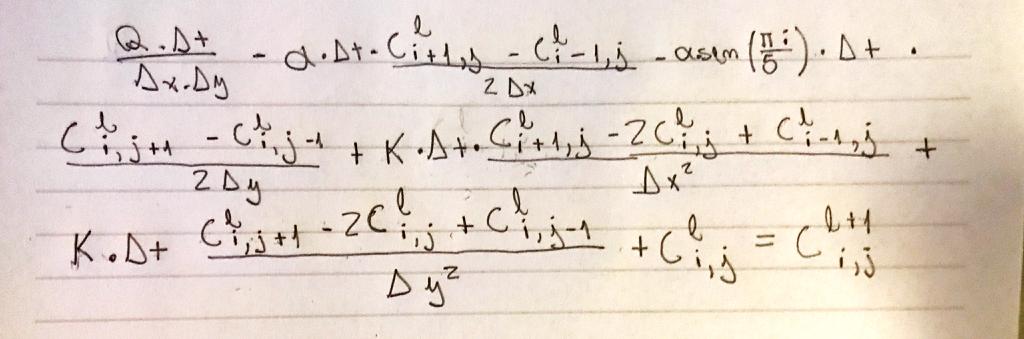 Q.Δt/(Δx.Δy) - α.Δt.(C^l_{i+1,j} - C^l_{i-1,j})/(2Δx) - αsen(πi/5).Δt.
(C^l_{i,j+1} - C^l_{i,j-1})/(2Δy) + K.Δt.(C^l_{i+1,j} - 2C^l_{i,j} + C^l_{i-1,j})/(Δx²) +
K.Δt (C^l_{i,j+1} - 2C^l_{i,j} + C^l_{i,j-1})/(Δy²) + C^l_{i,j} = C^{l+1}_{i,j}